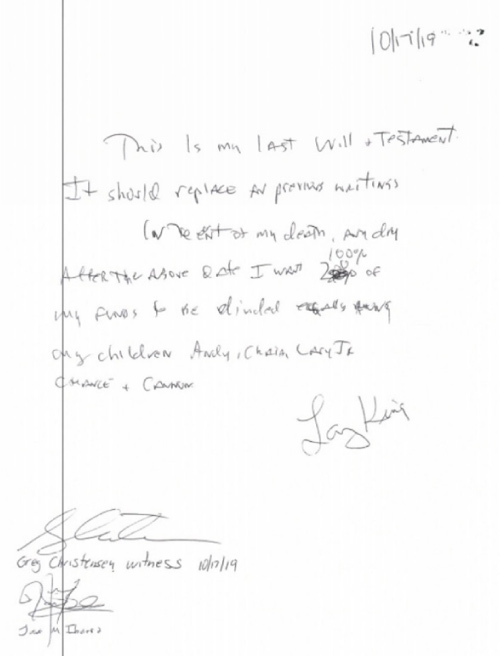 10/17/19
This Is my last Will + Testament.
It should replace all previous writings
In the event of my death, any day
After the Above Date I want
100%
of
my funds to be divided equally among
my children Andy, Chaia, Larry Jr
Chance + Cannon
Larry King
Greg Christensen, witness 10/17/19